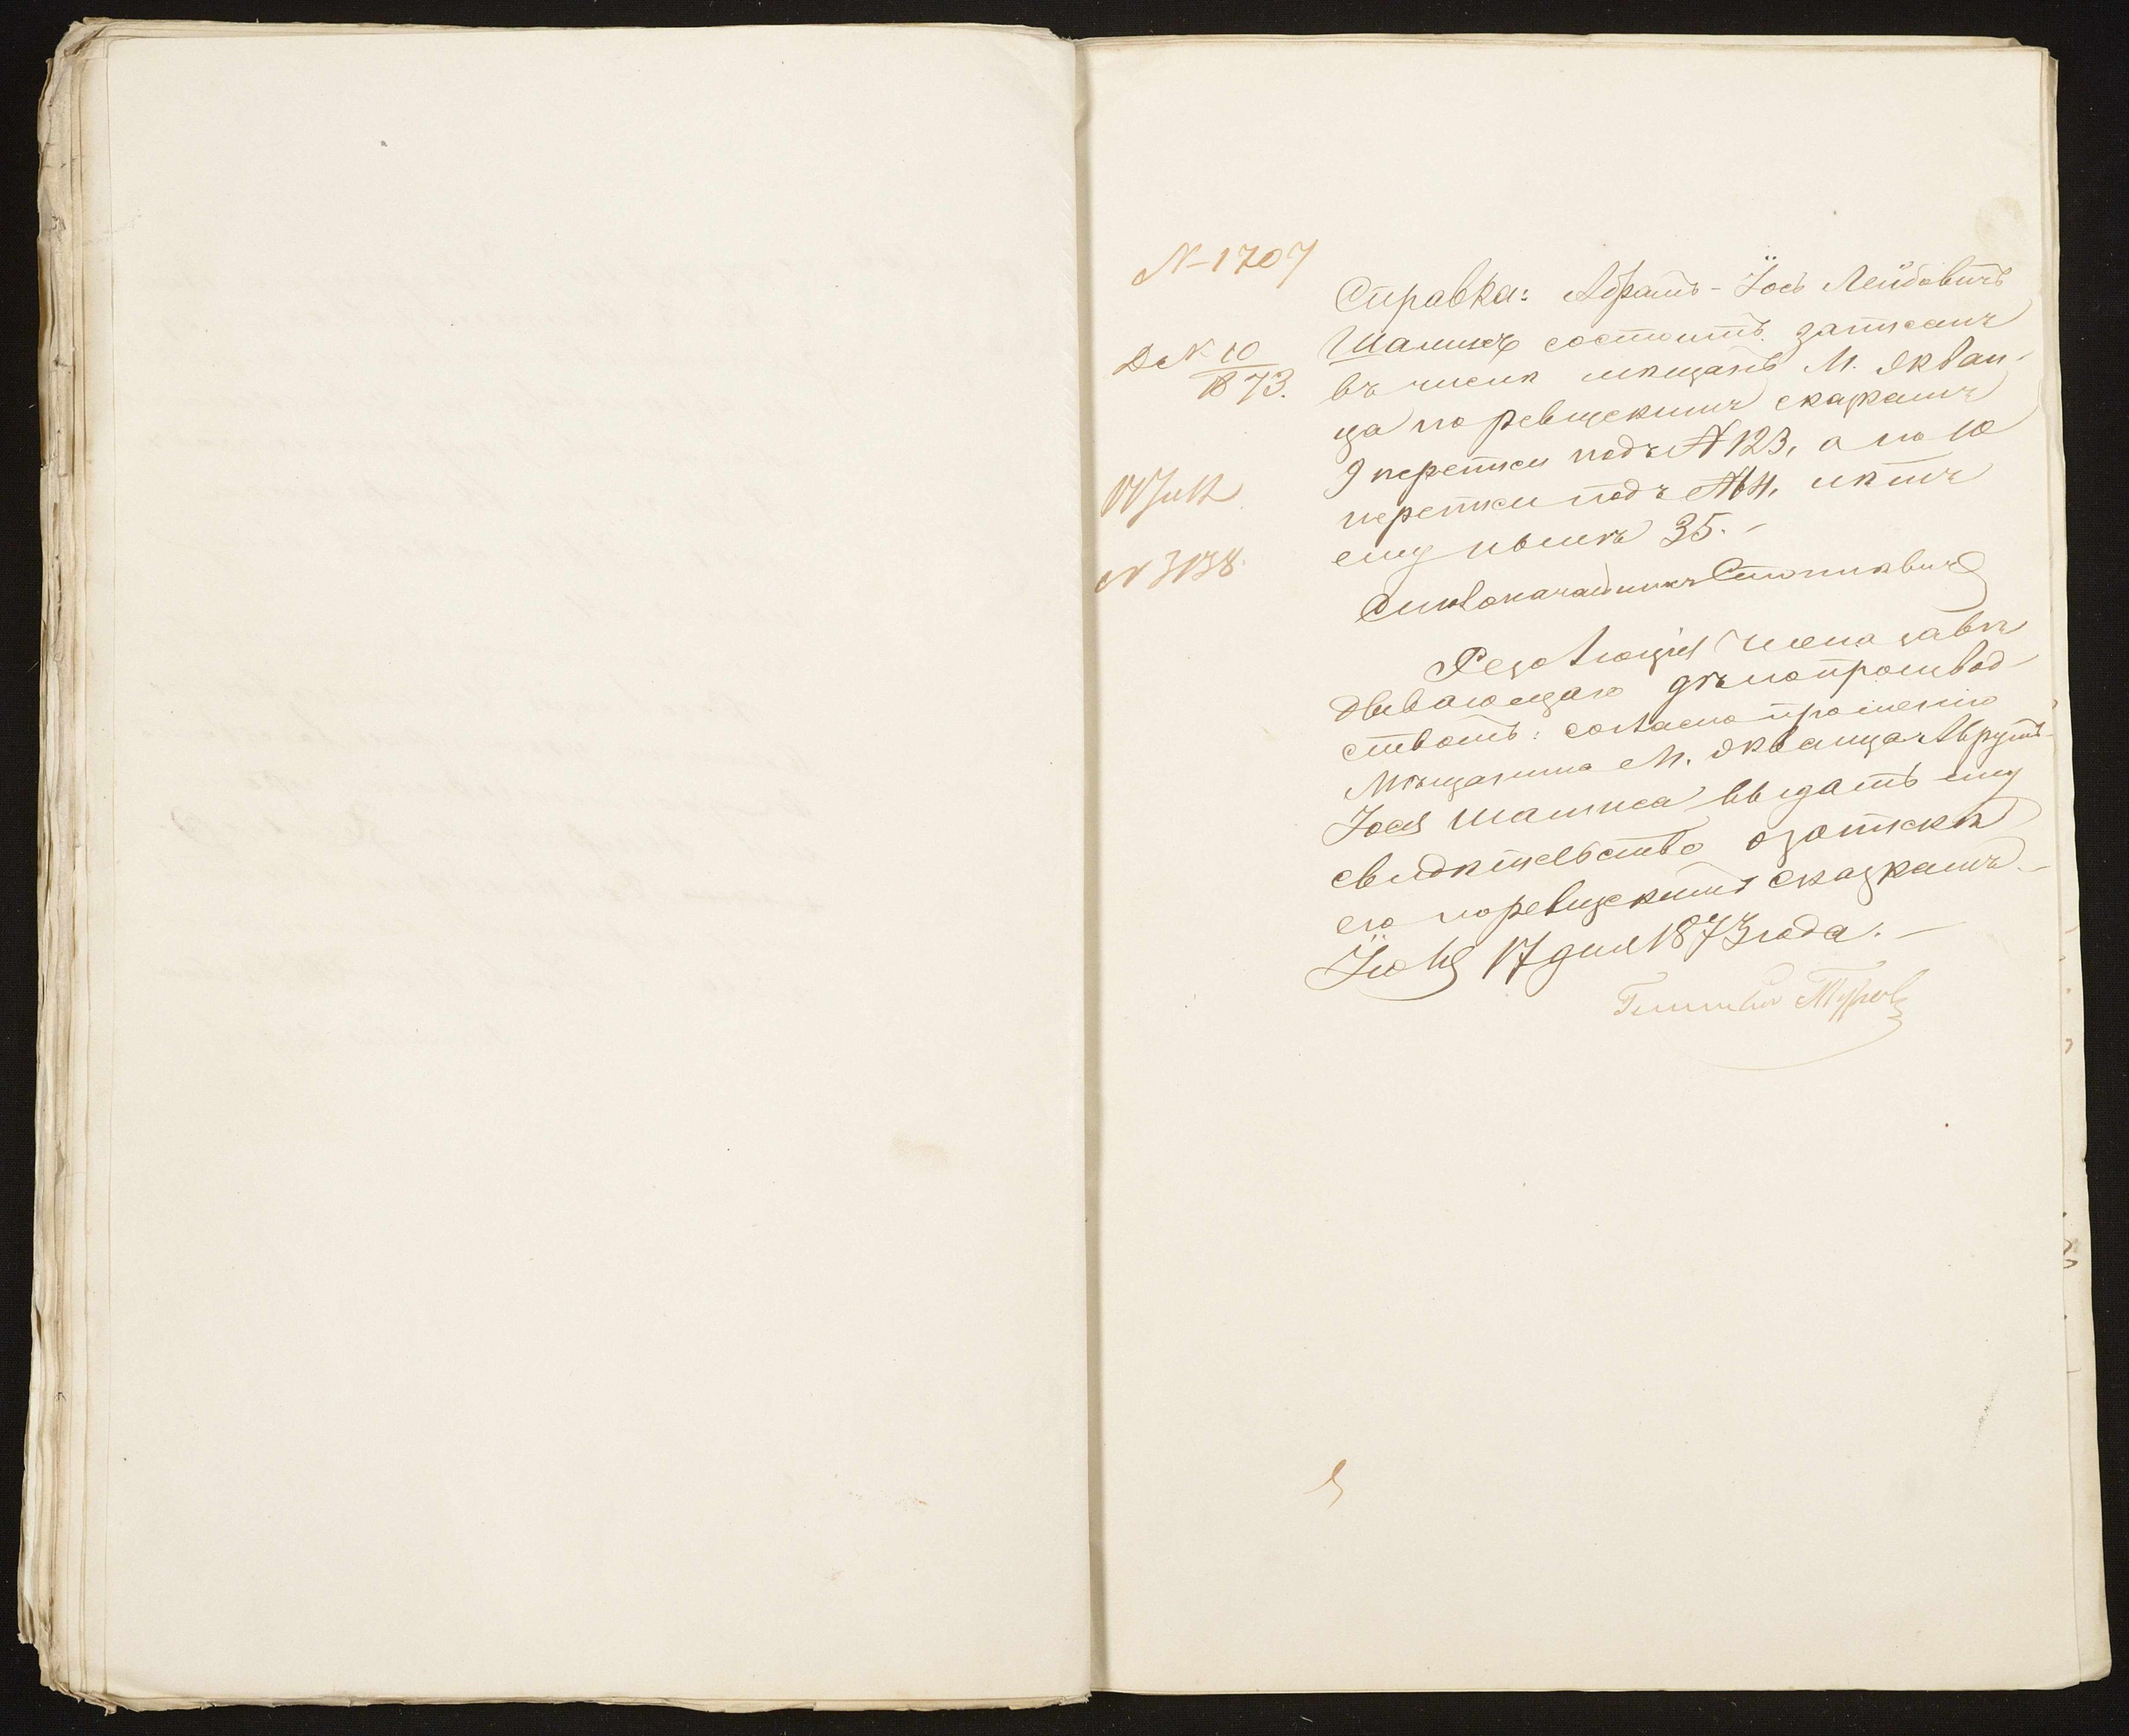 № 1707
Д № 10
1873.
17 Іюля
№ 3138.
Справка: Абрамъ-Іось Лейбовичъ
Шамисъ состоитъ записанъ
въ числѣ мѣщанъ М. Экван-
ца по ревизскимъ сказкамъ
9 переписи подъ № 123, а по 10
переписи подъ № 4, лѣтъ
ему нынѣ 35. –
Столоначальникъ
Резолюція Члена завѣ-
дывающаго дѣлопроизвод-
ствомъ: согласно прошенію
Мѣщанина М. Экванца Аврумъ-
Іося Шамиса выдать ему
свидѣтельство о запискѣ
его по ревизскимъ сказкамъ. –
Іюля 17 дня 1873 года. –